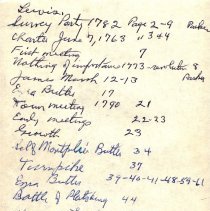 Survey Party 1782 Page 2-9
Charter June 7, 1763 " 3 & 4
First meeting 7
Nothing of importance 1773 - revolution 8
James Marsh 12-13
Ezra Butler 17
Town meeting 1790 21
Early meetings 22-23
Growth 23
Montpelier Butler 34
Turnpike 37
Ezra Butler 39-40-41-48-59-61
Battle of Plattsburg 44